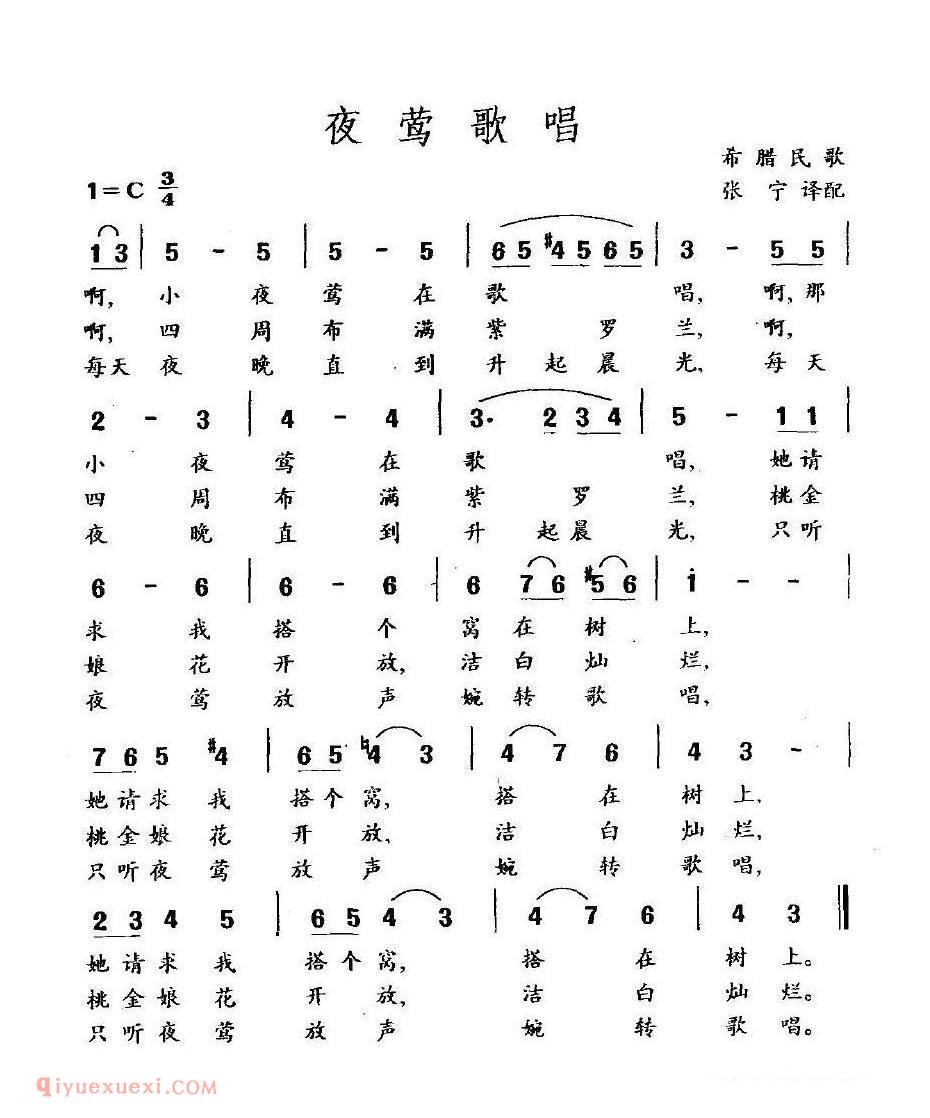 夜莺歌唱
希腊民歌
1=C 3/4
张宁译配
1 3 | 5 - 5 | 5 - 5 | 6 5 #4 5 6 5 | 3 - 5 5 |
啊,小夜莺在歌唱,啊,那
啊,四周布满紫罗兰,啊,
每天夜晚直到升起晨光,每天
2 - 3 | 4 - 4 | 3· 2 3 4 | 5 - 1 1 |
小夜莺在歌唱,她请
四周布满紫罗兰,桃金
夜晚直到升起晨光,只听
6 - 6 | 6 - 6 | 6 7 6 #5 6 | i - - |
求我搭个窝在树上,
娘花开放,洁白灿烂,
夜莺放声婉转歌唱,
7 6 5 #4 | 6 5 ♮4 3 | 4 7 6 | 4 3 - |
她请求我搭个窝,搭在树上,
桃金娘花开放,洁白灿烂,
只听夜莺放声婉转歌唱,
2 3 4 5 | 6 5 4 3 | 4 7 6 | 4 3 ‖
她请求我搭个窝,搭在树上。
桃金娘花开放,洁白灿烂。
只听夜莺放声婉转歌唱。
qiyuexuexi.com